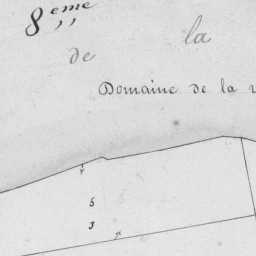 8eme
de la
Domaine de la
5
3